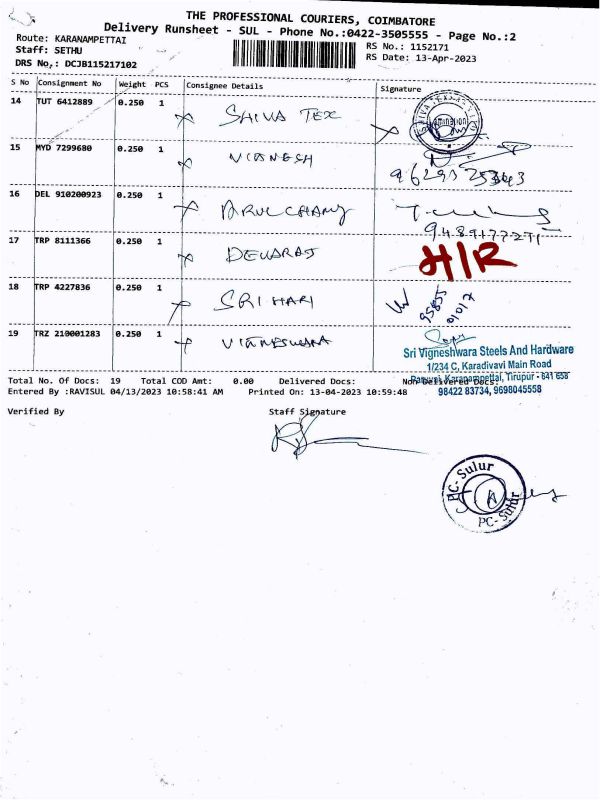 THE PROFESSIONAL COURIERS, COIMBATORE
Delivery Runsheet - SUL - Phone No.:0422-3505555 - Page No.:2
Route: KARANAMPETTAI
RS No.: 1152171
Staff: SETHU
RS Date: 13-Apr-2023
DRS No,: DCJB115217102
S No Consignment No Weight PCS Consignee Details Signature
14 TUT 6412889 0.250 1 SHIVA TEX
15 MYD 7299680 0.250 1 VIGNESH
16 DEL 910200923 0.250 1 ARULCHAMY
17 TRP 8111366 0.250 1 DEVARAJ H/R
18 TRP 4227836 0.250 1 SRI HARI
19 TRZ 210001283 0.250 1 VIGNESWARA
Sri Vigneshwara Steels And Hardware
1/234 C, Karadivavi Main Road
Karanampettai, Tirupur - 641 658
98422 83734, 9698045558
Total No. Of Docs: 19 Total COD Amt: 0.00 Delivered Docs: Non Delivered Docs:
Entered By :RAVISUL 04/13/2023 10:58:41 AM Printed On: 13-04-2023 10:59:48
Verified By Staff Signature
PC- Sulur
PC- Sulur